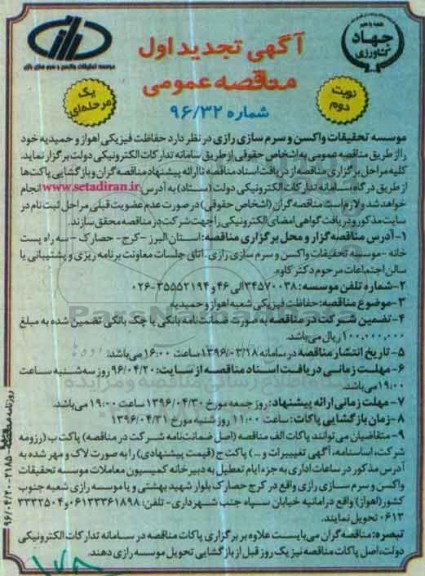 جهاد
کشاورزی
رازی
موسسه تحقیقات واکسن و سرم سازی رازی
آگهی تجدید اول
مناقصه عمومی
شماره ۹۶/۳۲
یک
مرحله‌ای
نوبت
دوم
موسسه تحقیقات واکسن و سرم سازی رازی در نظر دارد حفاظت فیزیکی اهواز و حمیدیه خود
را از طریق مناقصه عمومی به اشخاص حقوقی از طریق سامانه تدارکات الکترونیکی دولت برگزار نماید.
کلیه مراحل برگزاری مناقصه از دریافت اسناد مناقصه تا ارائه پیشنهاد مناقصه گران و بازگشایی پاکت‌ها
از طریق درگاه سامانه تدارکات الکترونیکی دولت (ستاد) به آدرس www.setadiran.ir انجام
خواهد شد و لازم است مناقصه گران (اشخاص حقوقی) در صورت عدم عضویت قبلی مراحل ثبت نام در
سایت مذکور و دریافت گواهی امضای الکترونیکی را جهت شرکت در مناقصه محقق سازند.
۱- آدرس مناقصه گزار و محل برگزاری مناقصه: استان البرز - کرج - حصارک - سه راه پست
خانه - موسسه تحقیقات واکسن و سرم سازی رازی، اتاق جلسات معاونت برنامه ریزی و پشتیبانی یا
سالن اجتماعات مرحوم دکتر کاوه.
۲- شماره تلفن موسسه: ۳۴۵۷۰۰۳۸ الی ۴۶ و ۳۵۵۵۲۱۹۴-۰۲۶
۳- موضوع مناقصه: حفاظت فیزیکی شعبه اهواز و حمیدیه
۴- تضمین شرکت در مناقصه به صورت ضمانت نامه بانکی یا چک بانکی تضمین شده به مبلغ
۱۰۰,۰۰۰,۰۰۰ ریال می‌باشد.
۵- تاریخ انتشار مناقصه در سامانه ۱۳۹۶/۰۳/۱۸ ساعت ۱۶:۰۰ می‌باشد.
۶- مهلت زمانی دریافت اسناد مناقصه از سایت: ۹۶/۰۴/۲۰ روز سه شنبه ساعت
۱۹:۰۰ می‌باشد.
۷- مهلت زمانی ارائه پیشنهاد: روز جمعه مورخ ۱۳۹۶/۰۴/۳۰ ساعت ۱۹:۰۰ می‌باشد.
۸- زمان بازگشایی پاکات: ساعت ۱۱:۰۰ روز شنبه مورخ ۱۳۹۶/۰۴/۳۱
۹- متقاضیان می‌توانند پاکات الف مناقصه (اصل ضمانتنامه شرکت در مناقصه) پاکت ب (رزومه
شرکت، اساسنامه، آگهی تغییرات و ...) پاکت ج (قیمت پیشنهادی) را به صورت لاک و مهر شده به
آدرس مذکور در ساعات اداری به جزء ایام تعطیل به دبیرخانه کمیسیون معاملات موسسه تحقیقات
واکسن و سرم سازی رازی واقع در کرج حصارک بلوار شهید بهشتی و یا موسسه رازی شعبه جنوب
کشور (اهواز) واقع در امانیه خیابان سپاه جنب شهرداری - تلفن: ۰۶۱۳۳۳۶۱۸۹۸ و ۳۳۳۲۵۰۴
۰۶۱۳ تحویل نمایند.
تبصره: مناقصه گران می‌بایست علاوه بر برگزاری پاکات مناقصه در سامانه تدارکات الکترونیکی
دولت، اصل پاکات مناقصه نیز یک روز قبل از بازگشایی تحویل موسسه رازی دهند.
روزنامه مناقصه مزایده - ۲۱۸۵ - ۹۶/۰۴/۲۰